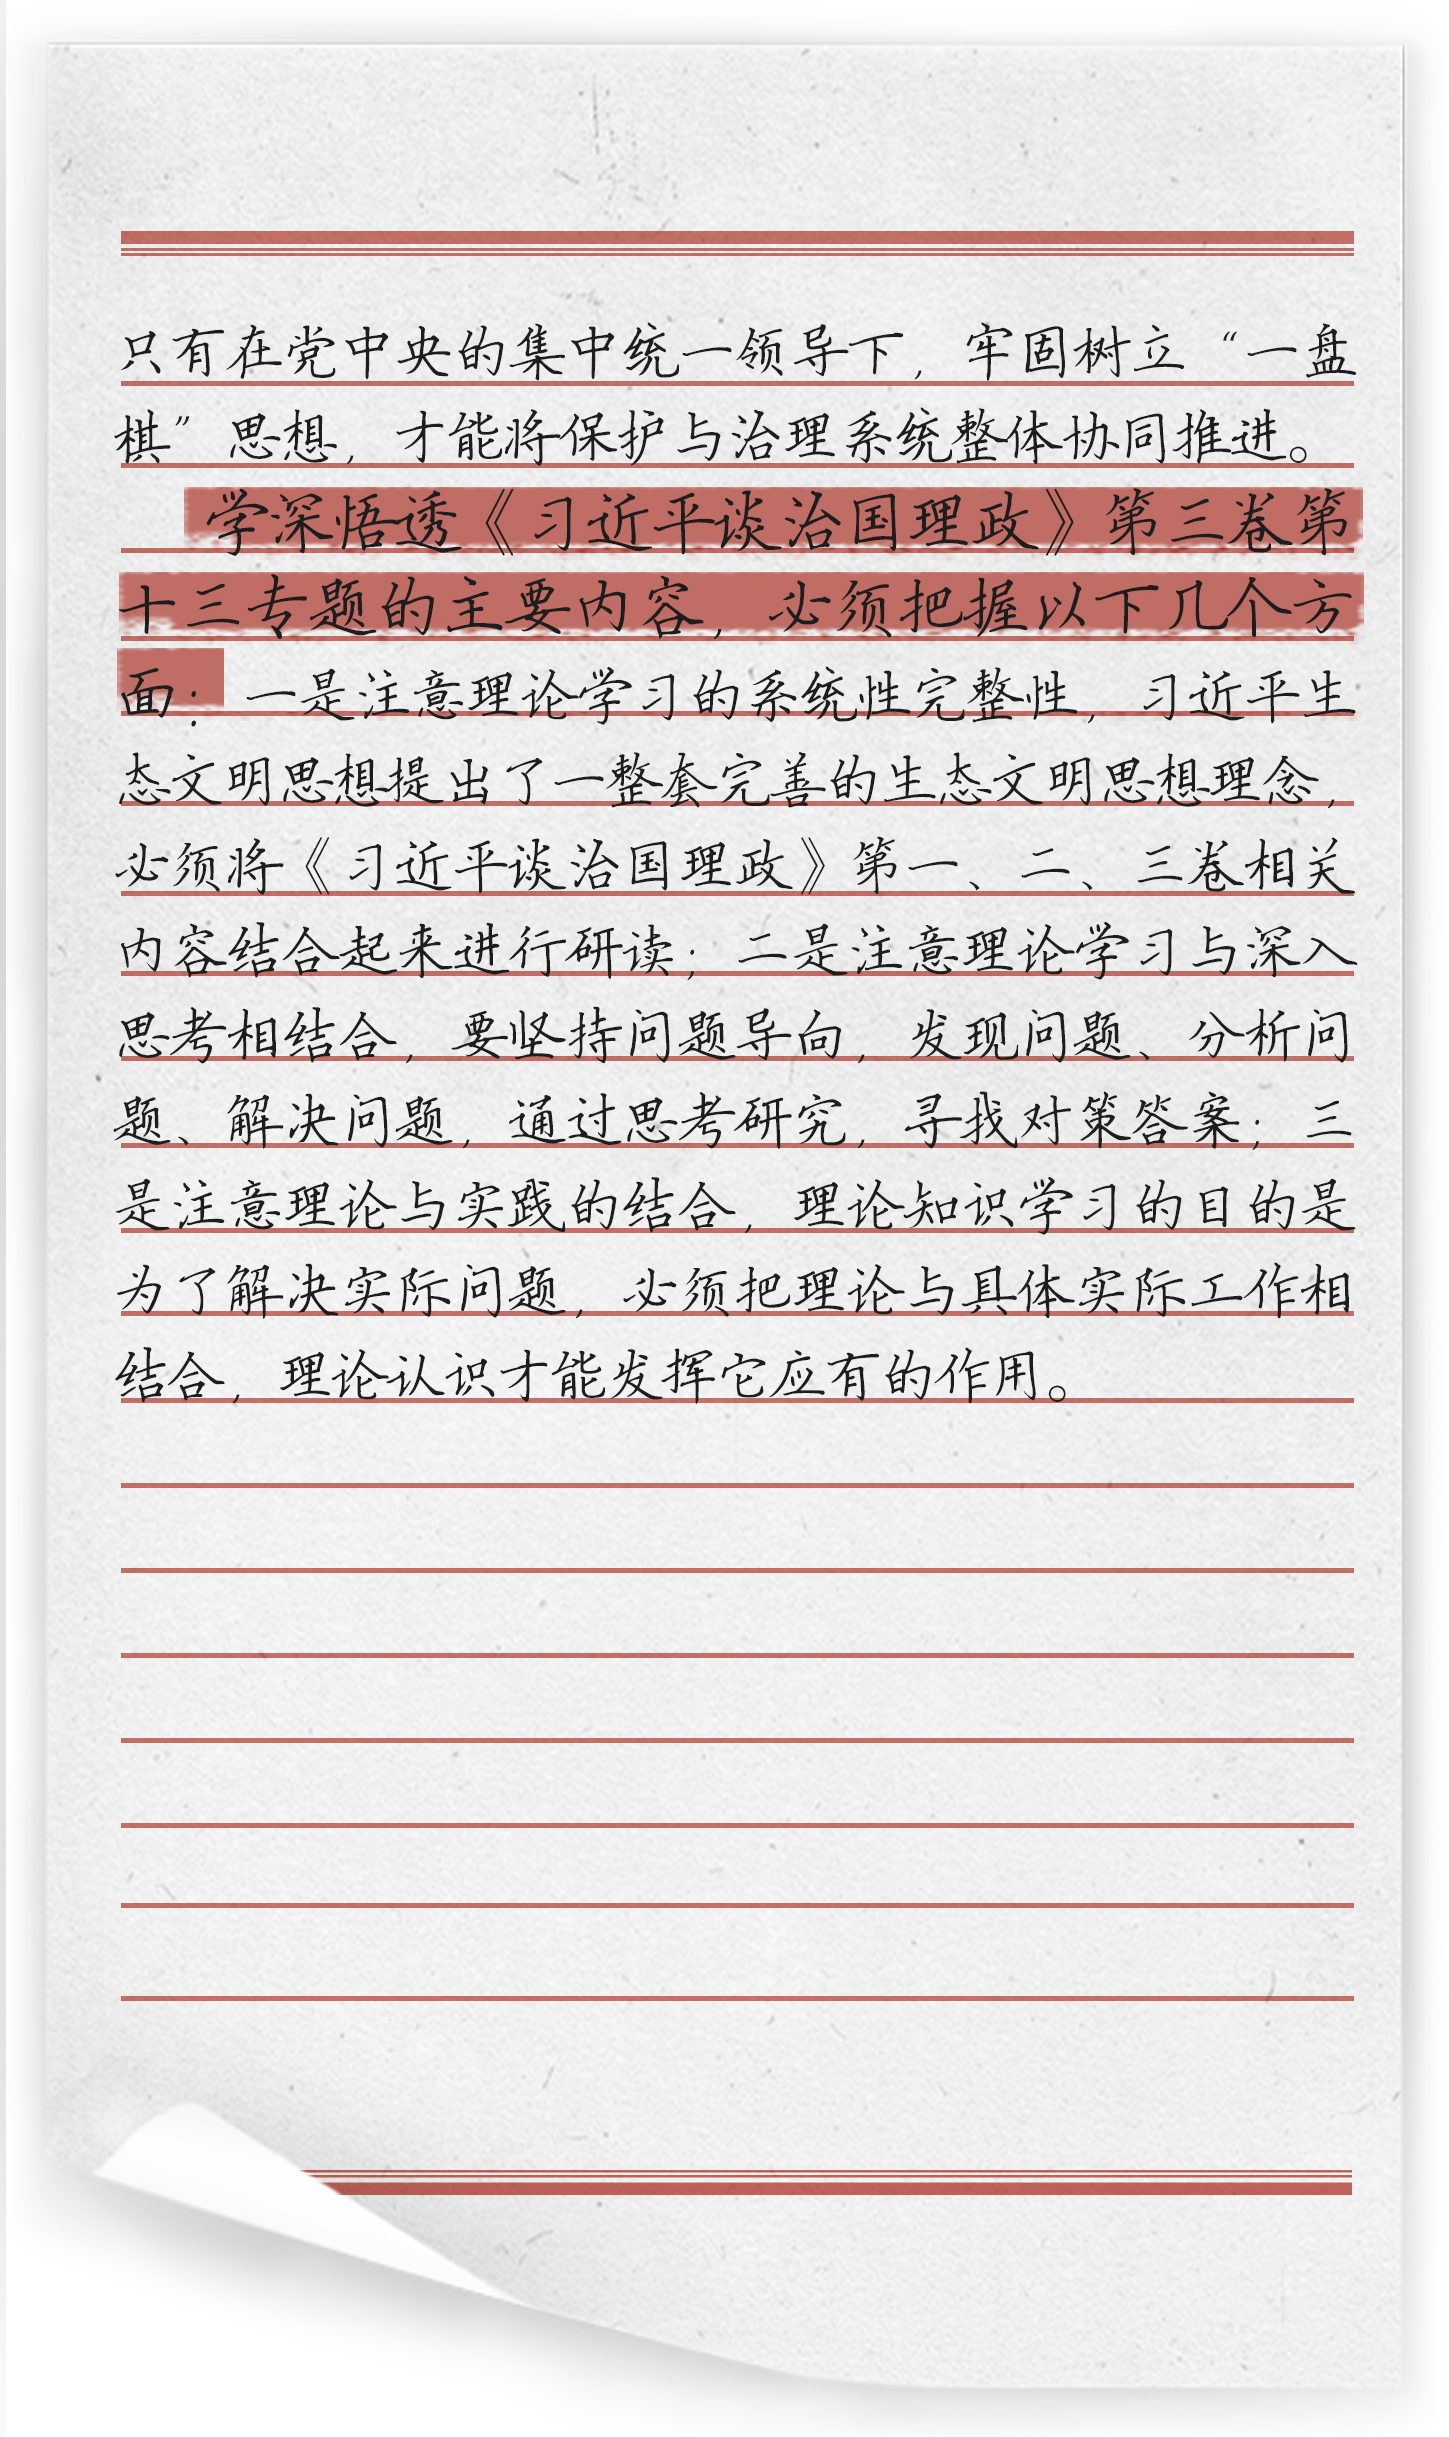 只有在党中央的集中统一领导下，牢固树立“一盘
棋”思想，才能将保护与治理系统整体协同推进。
学深悟透《习近平谈治国理政》第三卷第
十三专题的主要内容，必须把握以下几个方
面：一是注意理论学习的系统性完整性，习近平生
态文明思想提出了一整套完善的生态文明思想理念，
必须将《习近平谈治国理政》第一、二、三卷相关
内容结合起来进行研读；二是注意理论学习与深入
思考相结合，要坚持问题导向，发现问题、分析问
题、解决问题，通过思考研究，寻找对策答案；三
是注意理论与实践的结合，理论知识学习的目的是
为了解决实际问题，必须把理论与具体实际工作相
结合，理论认识才能发挥它应有的作用。